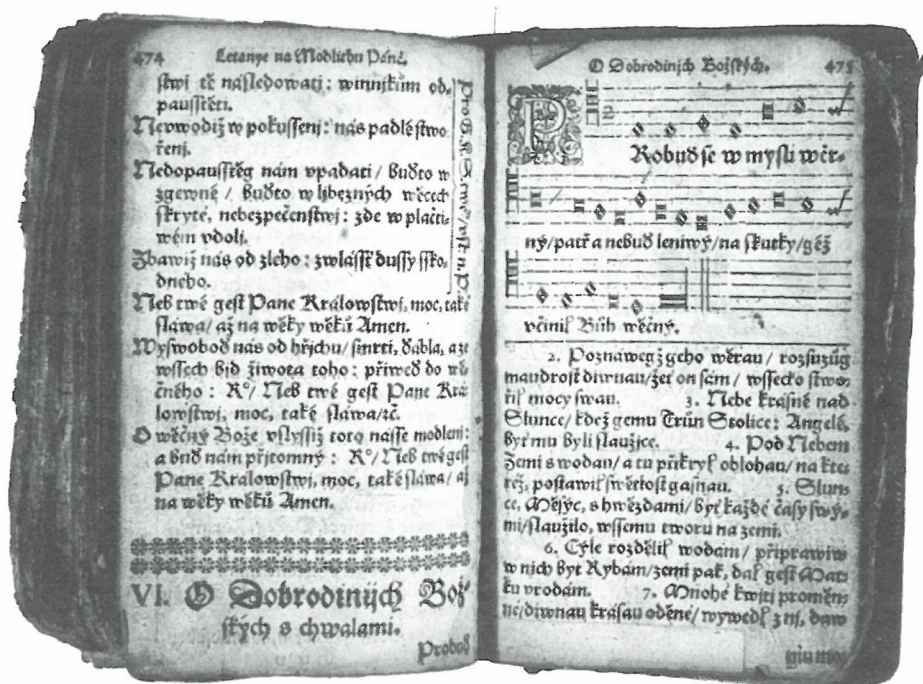 474 Letanye na Modlitbu Páně.
ſtwi tě náſledowati: winnjkům od,
pauſſtěti.
Nevwodiž w pokuſſenj: nás padlé ſtwo
řenj.
Nedopauſſtěg nám vpadati / buďto w
zgewné / buďto w ljbezných wěcech
ſkryté, nebezpečenſtwj: zde w plačti,
wém vdolj.
Zbawiž nás od zlého: zwláſſť duſſy ſſko,
dného.
Neb twé geſt Pane Kralowſtwj, moc, také
ſláwa / až na wěky wěků Amen.
Wyſwoboď nás od hřjchu / ſmrti, ďábla, a ze
wſſech bjd života toho: přiweď do wě
čného: R°/ Neb twé geſt Pane Krá
lowſtwj, moc, také ſláwa / ꝛč.
O wěčný Bože vſlyſſiž toto naſſe modlenj:
a buď nám přjtomný: R°/ Neb twé geſt
Pane Kralowſtwj, moc, také ſláwa / až
na wěky wěků Amen.
VI. O Dobrodinijch Bož,
ſkých s chwalami.
Probuď
O Dobrodinjch Božſkých. 475
PRobuď ſe w myſli wěr,
ný / patř a nebuď leniwý / na ſkutky / géž
včinil Bůh wěčný.
2. Poznáweg z geho wěrau / rozſuzůg
maudroſt diwnau / žeť on ſám / wſſecko ſtwo,
řil mocy ſwau. 3. Nebe kraſné nad
Slunce / kdež gemu Trůn Stolice: Angelé,
byť mu byli ſlaužjce. 4. Pod Nebem
Zemi s wodau / a tu přikryl oblohau / na kte
réž, poſtawil ſwětloſt gaſnau. 5. Slun,
ce, Měſýc, s hwězdami / byť každé čaſy ſwý,
mi / ſlaužilo, wſſemu tworu na zemi.
6. Cýle rozdělil wodám / připrawiw
w nich byt Rybám / zemi pak, dal geſt Mat,
ku vrodám. 7. Mnohé kwjtj proměn,
né / diwnau kráſau oděné / wywedl z nj, daw